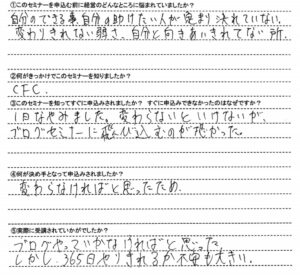 ①このセミナーを申込む前に経営のどんなところに悩まれていましたか?
自分のできる事、自分の助けたい人が定まり決れていない。
変わりきれない弱さ、自分と向きあいきれてない所。
②何がきっかけでこのセミナーを知りましたか?
CFC.
③このセミナーを知ってすぐに申込みされましたか? すぐに申込みできなかったのはなぜですか?
1日なやみました。変わらないといけないが、
ブログセミナーに飛び込むのが恐かった。
④何が決め手となって申込みされましたか?
変わらなければと思ったため.
⑤実際に受講されていかがでしたか?
ブログやっていかなければと思った
しかし、365日やりきれるか不安も大きい.